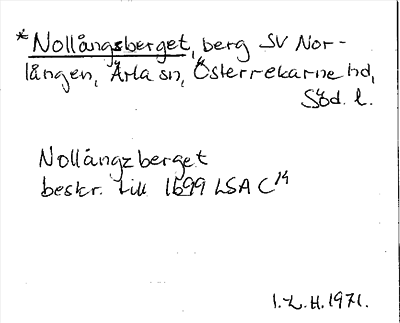 *Nollångsberget, berg SV Nor-
lången, Ärla sn, Österrekarne hd,
Söd. l.
Nollångzberget
beskr. till 1699 LSA C¹⁴
I.L.H. 1971.